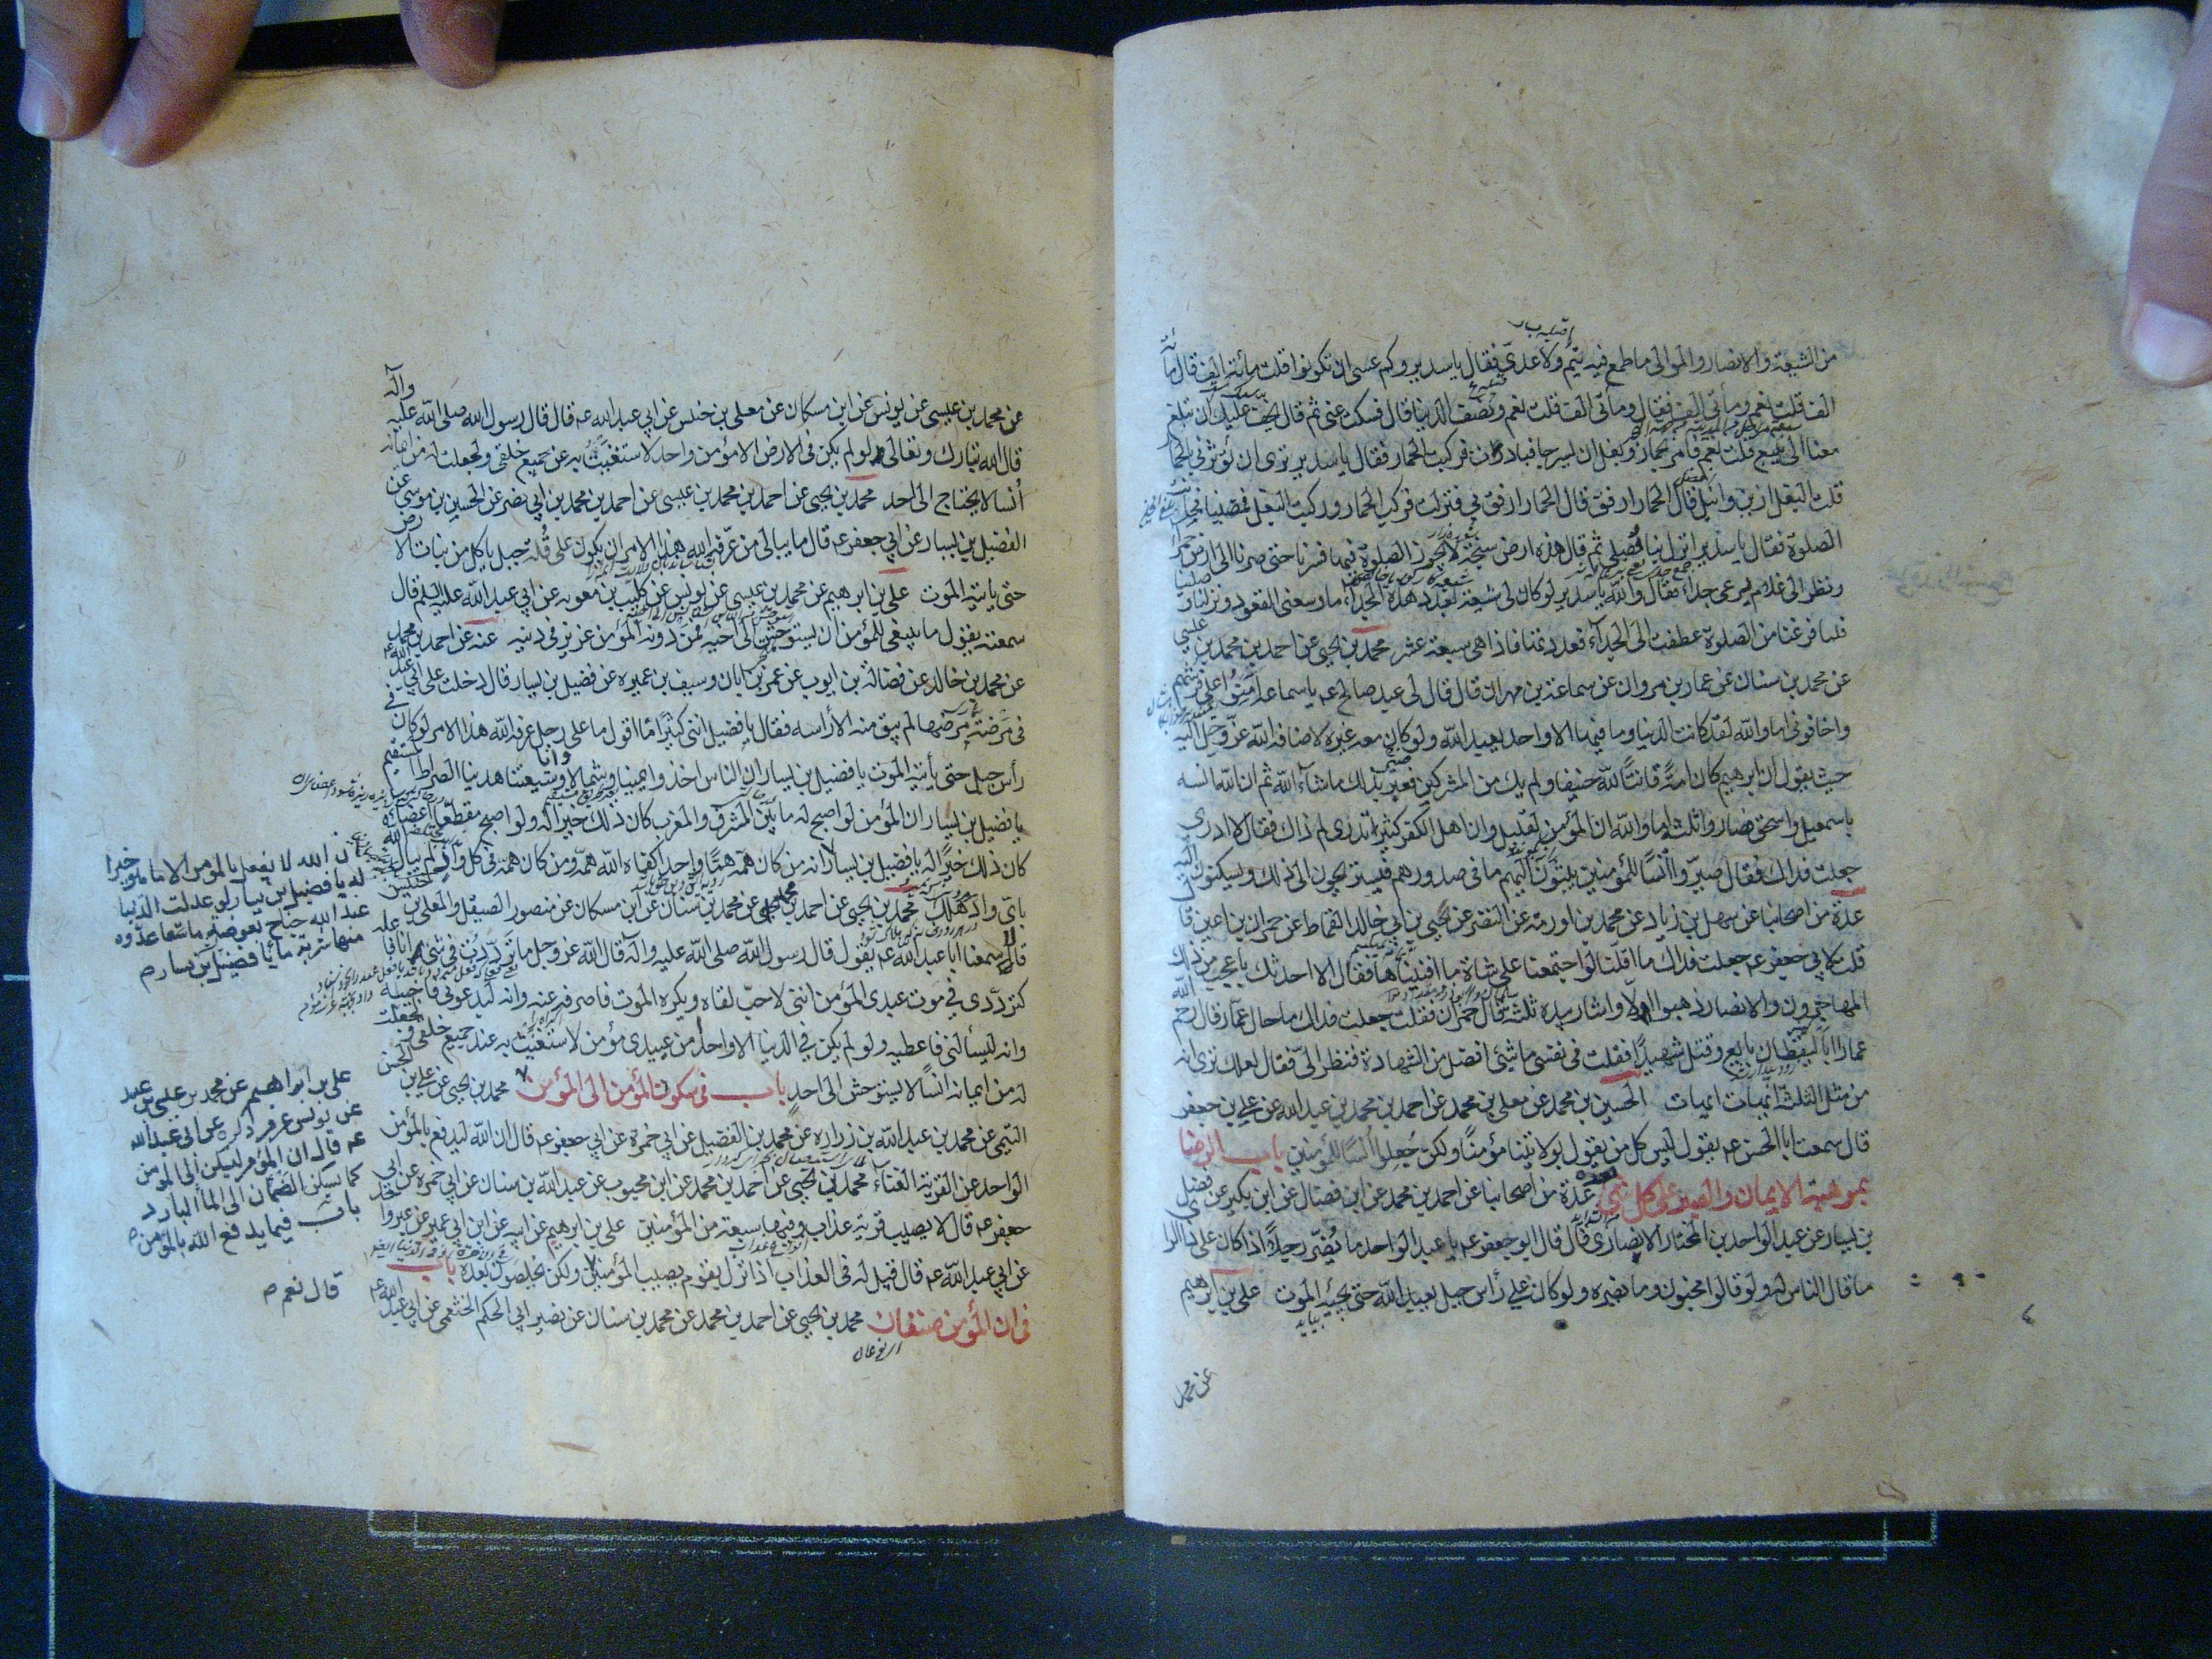 من الشيعة والانصار والموالى ما طمع فيه تيم ولا عدى فقال يا سدير وكم عسى ان تكونوا قلت مائة الف قال مائة
الف قلت نعم ومأتى الف فقال ومأتى الف قلت نعم ونصف الدنيا قال فسكت عنى ثم قال يخف عليك ان تبلغ
معنا الى ينبع قلت نعم فامر بحمار وبغل ان يسرجا فبادرت فركبت الحمار فقال يا سدير ترى ان تؤثرنى بالحمار
قلت البغل ازين وانبل قال الحمار ارفق بى فنزلت فركب الحمار وركبت البغل فمضينا فحانت
الصلوة فقال يا سدير انزل بنا نصلى ثم قال هذه ارض سبخة لا يجوز الصلوة فيها فسرنا حتى صرنا الى ارض حمراء
ونظر الى غلام يرعى جداء فقال والله يا سدير لو كان لى شيعة بعدد هذه الجداء ما وسعنى القعود ونزلنا وصلينا
فلما فرغنا من الصلوة عطفت الى الجداء فعددتها فاذا هى سبعة عشر محمد بن يحيى عن احمد بن محمد بن عيسى
عن محمد بن سنان عن عمار بن مروان عن سماعة بن مهران قال قال لى عبد صالح ع يا سماعة امنوا على فرشهم
واخافونى اما والله لقد كانت الدنيا وما فيها الا واحد يعبد الله ولو كان معه غيره لاضافه الله عز وجل اليه
حيث يقول ان ابرهيم كان امة قانتا لله حنيفا ولم يك من المشركين فغبر بذلك ما شاء الله ثم ان الله انسه
باسمعيل واسحق فصاروا ثلثة اما والله ان المؤمن لقليل وان اهل الكفر كثير اتدرى لم ذاك فقال لا ادرى
جعلت فداك فقال صيروا انسا للمؤمنين يبثون اليهم ما فى صدورهم فيستريحون الى ذلك ويسكنون اليه
عدة من اصحابنا عن سهل بن زياد عن محمد بن اورمة عن النضر عن يحيى بن ابى خالد القماط عن حمران بن اعين قال
قلت لابى جعفر ع جعلت فداك ما اقلنا لو اجتمعنا على شاة ما افنيناها فقال الا احدثك باعجب من ذلك
المهاجرون والانصار ذهبوا الا واشار بيده ثلثة قال حمران فقلت جعلت فداك ما حال عمار قال رحم الله
عمارا ابا اليقظان بايع وقتل شهيدا فقلت فى نفسى ما شىء افضل من الشهادة فنظر الى فقال لعلك ترى انه
من مثل الثلثة ايهات ايهات الحسين بن محمد عن معلى بن محمد عن احمد بن محمد بن عبد الله عن على بن جعفر
قال سمعت ابا الحسن ع يقول ليس كل من يقول بولايتنا مؤمنا ولكن جعلوا انسا للمؤمنين باب الرضا
بموهبة الايمان والصبر على كل شئ بعده عدة من اصحابنا عن احمد بن محمد عن ابن فضال عن ابن بكير عن فضيل
بن يسار عن عبد الواحد بن المختار الانصارى قال قال ابو جعفر ع يا عبد الواحد ما يضر رجلا اذا كان على ذا الراى
ما قال الناس له ولو قالوا مجنون وما يضره ولو كان على رأس جبل يعبد الله حتى يجيئه الموت على بن ابرهيم
عن محمد
عن محمد بن عيسى عن يونس عن ابن مسكان عن معلى بن خنيس عن ابى عبد الله ع قال قال رسول الله صلى الله عليه وآله
قال الله تبارك وتعالى لو لم يكن فى الارض الا مؤمن واحد لاستغنيت به عن جميع خلقى ولجعلت له من ايمانه
انسا لا يحتاج الى احد محمد بن يحيى عن احمد بن محمد بن عيسى عن احمد بن محمد بن ابى نصر عن الحسين بن موسى عن
الفضيل بن يسار عن ابى جعفر ع قال ما يبالى من عرفه الله هذا الامر ان يكون على قلة جبل ياكل من نبات الارض
حتى يأتيه الموت على بن ابرهيم عن محمد بن عيسى عن يونس عن كليب بن معوية عن ابى عبد الله عليه السلم قال
سمعته يقول ما ينبغى للمؤمن ان يستوحش الى اخيه فمن دونه المؤمن عزيز فى دينه عنه عن احمد بن محمد
عن محمد بن خالد عن فضالة بن ايوب عن عمر بن ابان وسيف بن عميره عن فضيل بن يسار قال دخلت على ابى عبد الله ع
فى مرضة مرضها لم يبق منه الا رأسه فقال يا فضيل اننى كثيرا ما اقول ما على رجل عرفه الله هذا الامر لو كان فى
رأس جبل حتى يأتيه الموت يا فضيل بن يسار ان الناس اخذوا يمينا وشمالا وانا وشيعتنا هدينا الصراط المستقيم
يا فضيل بن يسار ان المؤمن لو اصبح له ما بين المشرق والمغرب كان ذلك خيرا له ولو اصبح مقطعا اعضاؤه
كان ذلك خيرا له يا فضيل بن يسار لانه من كان همه هما واحدا كفاه الله همه ومن كان همه فى كل واد لم يبال الله
باى واد هلك محمد بن يحيى عن احمد بن محمد بن عيسى عن محمد بن سنان عن ابن مسكان عن منصور الصيقل والمعلى بن خنيس
قالا سمعنا ابا عبد الله ع يقول قال رسول الله صلى الله عليه وآله قال الله عز وجل ما ترددت فى شئ انا فاعله
كترددى فى موت عبدى المؤمن اننى لاحب لقاه ويكره الموت فاصرفه عنه وانه ليدعونى فاجيبه
وانه ليسألنى فاعطيه ولو لم يكن فى الدنيا الا واحد من عبيدى مؤمن لاستغنيت به عن جميع خلقى ولجعلت
له من ايمانه انسا لا يستوحش الى احد باب فى سكون المؤمن الى المؤمن محمد بن يحيى عن على بن الحسن
التيمى عن محمد بن عبد الله بن زراره عن محمد بن الفضيل عن ابى حمزة عن ابى جعفر ع قال ان الله ليدفع بالمؤمن
الواحد عن القرية الفناء محمد بن يحيى عن احمد بن محمد عن ابن محبوب عن عبد الله بن سنان عن ابى حمزه عن ابى
جعفر ع قال لا يصيب قرية عذاب وفيها سبعة من المؤمنين على بن ابرهيم عن ابيه عن ابن ابى عمير عن غير واحد
عن ابى عبد الله ع قال قيل له فى العذاب اذا نزل بقوم يصيب المؤمنين ولكن يخلصون بعده باب
فى ان المؤمن صنفان محمد بن يحيى عن احمد بن محمد عن محمد بن سنان عن نصير ابى الحكم الخثعمى عن ابى عبد الله ع
اى نوعان
ان الله لا يفعل بالمؤمن الا ما هو خيرا
له يا فضيل بن يسار لو عدلت الدنيا
عند الله جناح بعوضة ما سقا عدوه
منها شربة ماء يا فضيل بن يسار
على بن ابراهيم عن محمد بن عيسى
عن يونس عمن ذكره عن ابى عبد الله
ع قال ان المؤمن ليسكن الى المؤمن
كما يسكن الظمآن الى الماء البارد
باب فيما يدفع الله بالمؤمن
قال نعم